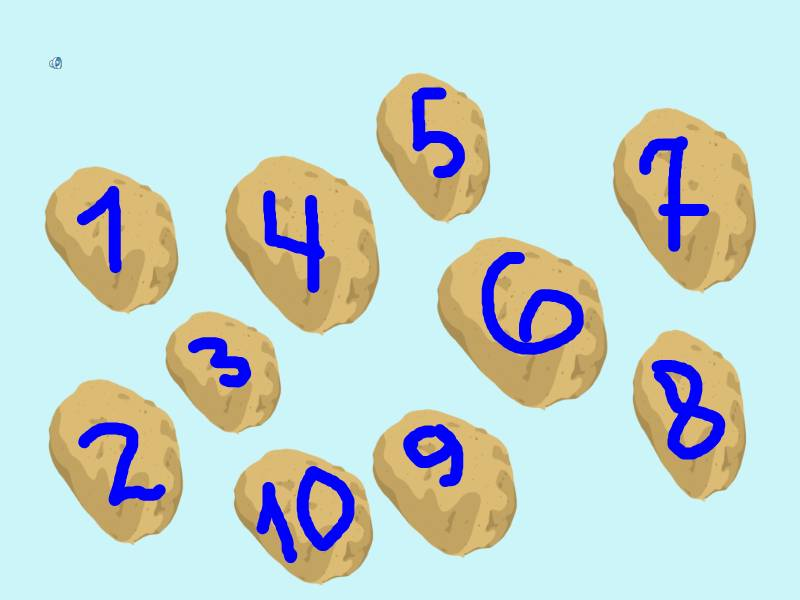 5
7
1
4
6
3
8
2
9
10